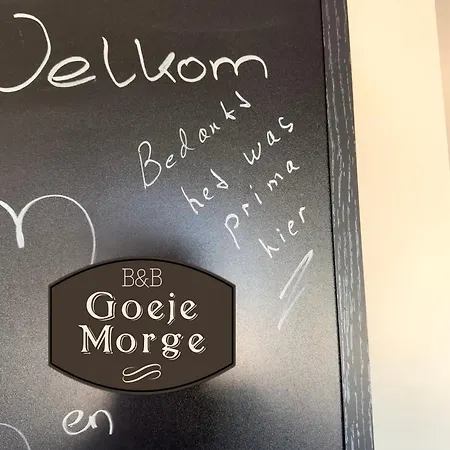 Welkom
Bedankt
het was
prima
hier
B&B
Goeje
Morge
en